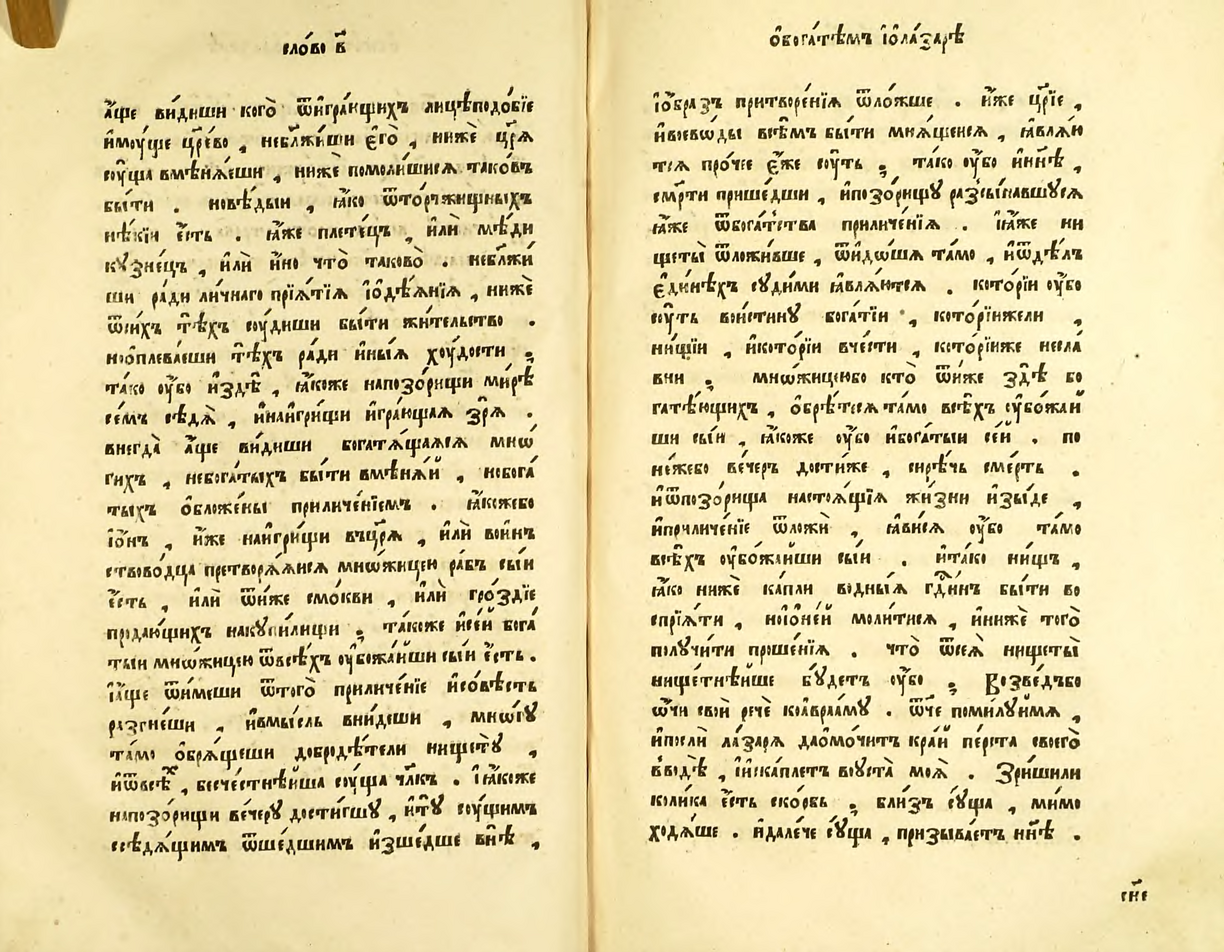 сло́во в҃
а҆́ще ви́диши кого̀ ѿи҆гра́ющихъ лицѣподо́бїе
и҆мꙋ́ще цр҃е́во , неблж҃и́ши є҆го̀ , нижѐ цр҃ѧ̀
сꙋ́ща вмѣнѧ́еши , нижѐ помо́лишисѧ тако́въ
бы́ти . новѣ́дыи , ꙗ҆́ко ѿто́ржищныхъ
нѣ́кїи є҆́сть . ꙗ҆́же плете́цъ , и҆лѝ мѣ́ди
кꙋзне́цъ , и҆лѝ и҆́но что̀ таково̀ . неблж҃и́
ши ра́ди ли́чнаго прїѧ́тїѧ и҆ѻ҆дѣѧ́нїѧ , нижѐ
ѿси́хъ тѣ́хъ сꙋ́диши бы́ти жи́тельство .
ноѻ҆плева́еши тѣ́хъ ра́ди и҆ны́ѧ хꙋ́дости ;
та́ко ᲂу҆́бо и҆здѣ̀ , ꙗ҆́коже напозо́рищи ми́рѣ
се́мъ сѣдѧ̀ , и҆наи҆гри́щи и҆гра́ющаѧ зрѧ̀ .
внегда̀ а҆́ще ви́диши богатѧ́щаѧсѧ мнѡ́
гихъ , небога́тыхъ бы́ти вмѣнѧ́й , нобога́
тыхъ ѻ҆бложе́ны приличе́нїемъ . ꙗ҆́кожебо
і҆ѻ́нъ , и҆́же наи҆гри́щи въцр҃ѧ̀ , и҆лѝ во́ин
ствово́дца претворѧ́ѧисѧ мно́жицею ра́бъ сы́и
є҆́сть , и҆лѝ ѿи҆́же смо́кви , и҆лѝ гро́здїе
продаю́щихъ накꙋпи́лищи ; та́коже и҆се́й бога́
тыи мно́жицею ѿвсѣ́хъ ᲂу҆бо́жаиши сы́и є҆́сть .
і҆а҆́ще ѿи́меши ѿтого̀ приличе́нїе и҆со́вѣсть
разгне́ши , и҆вмы́сль вни́деши , мно́гꙋ
та́мо ѻ҆брѧ́щеши добродѣ́тели нищетꙋ̀ ,
и҆ѿвсѣ́х , бесче́стнѣйша сꙋ́ща чл҃ка . і҆ꙗ҆́коже
напозо́рищи ве́черꙋ дости́гшꙋ , и҆тꙋ̀ сꙋ́щимъ
ссѣдѧ́щимъ ѿше́дшимъ и҆зше́дше внѣ̀ ,
ѻ҆бога́тѣмъ і҆ѻ҆ла́зарѣ
і҆ѻ҆́бразъ притворе́нїѧ ѿло́жше . и҆́же цр҃їе ,
и҆воево́ды всѣ́мъ бы́ти мнѧ́щеисѧ , ꙗ҆влѧ́ю
тсѧ про́чее є҆́же сꙋ́ть ; та́ко ᲂу҆́бо и҆нн҃ѣ ,
см҃рти прише́дши , и҆позо́рищꙋ разсы́павшꙋсѧ
ꙗ҆́же ѿбога́тства приличе́нїѧ . і҆ꙗ҆́же ни
щеты̀ ѿложи́вше , ѿидо́шѧ та́мо , и҆ѿдѣ́лъ
є҆ди́нѣхъ сꙋди́ми ꙗ҆влѧ́ютсѧ . кото́рїи ᲂу҆́бо
сꙋ́ть вои́стинꙋ бога́тїи , кото́рїижели ,
ни́щїи , и҆кото́рїи вче́сти , кото́рїиже несла́
вни ; мно́жицеюбо кто̀ ѿи́же здѣ̀ бо
гатѣ́ющихъ , ѻ҆брѣ́тсѧ та́мо всѣ́хъ ᲂу҆бо́жай
ши сы́и , ꙗ҆́коже ᲂу҆́бо и҆бога́тыи се́й . по
не́жебо ве́черъ дости́же , си́рѣчь сме́рть .
и҆ѿпозо́рища настоѧ́щїѧ жи́зни и҆зы́де ,
и҆приличе́нїе ѿложѝ , ꙗ҆ви́сѧ ᲂу҆́бо та́мо
всѣ́хъ ᲂу҆бо́жаиши сы́и . и҆та́ко ни́щъ ,
ꙗ҆́ко нижѐ ка́пли во́дныѧ гд҇и́нъ бы́ти во
спрїѧ́ти , ноѻ҆не́й моли́тисѧ , и҆нижѐ того̀
полꙋчи́ти проше́нїѧ . что̀ ѿсеѧ̀ нищеты̀
нищетнѣ́йше бꙋ́детъ ᲂу҆́бо ; Возве́дъбо
ѻ҆́чи свои̑ речѐ коа҆враа́мꙋ . ѿ́че поми́лꙋймѧ ,
и҆послѝ ла́зарѧ даомо́читъ кра́й пе́рста своего̀
вводѣ̀ , і҆иска́плетъ воꙋста̀ моѧ̀ . Зри́шили
коли́ка є҆́сть ско́рбь ; бли́зъ сꙋ́ща , мимо
хожда́ше . и҆дале́че сꙋ́ща , призыва́етъ нн҃ѣ .
сн҃е